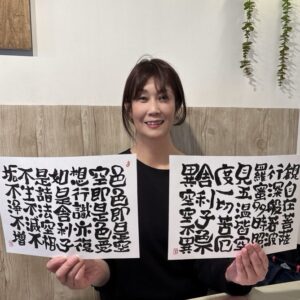 觀自在菩薩
行深般若波
羅蜜多時照
見五蘊皆空
度一切苦厄
舍利子色不
異空空不異
色色即是空
空即是色受
想行識亦復
如是舍利子
是諸法空相
不生不滅不
垢不淨不增